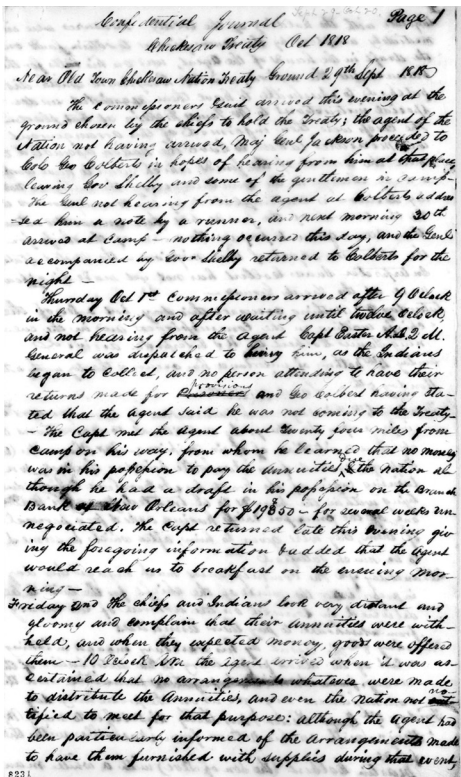 Sept. 29-Oct. 20,
Confidential Journal Page 1
Chicksaw Treaty Oct 1818
Near Old Town Chicksaw Nation Treaty Ground 29th Sept 1818
The commissioners Genl arrived this evening at the
ground chosen by the chiefs to hold the Treaty; the agent of the
Nation not having arrived, Maj Genl Jackson proceeded to
Colo Geo Colberts in hopes of hearing from him at that place
leaving Gov Shelby and some of the gentlemen in camp-
The Genl not hearing from the agent at Colberts addres
=sed him a note by a runner, and next morning 30th
arrived at camp - nothing occurred this day, and the Genl
accompanied by Gov Shelby returned to Colberts for the
night -
Thursday Oct 1st Commissioners arrived after 9 Oclock
in the morning and after waiting until twelve Oclock
and not hearing from the agent Capt Easter A.D.2 M.
General was dispatched to bring him, as the Indians
began to collect, and no person attending to have their
provision
returns made for and Geo Colbert having sta-
ted that the agent said he was not coming to the Treaty-
- The Capt met the agent about twenty four miles from
camp on his way; from whom he learned that no money
was in his possession to pay the annuities, the nation al
though he had a draft in his possession on the Branch
Bank of New Orleans for - for several weeks un
negociated. The Capt returned late this evening giv
ing the foregoing information & added that the agent
would reach us to breakfast on the ensuing mor-
ning -
Friday 2nd The chiefs and Indians look very distant and
gloomy and complain that their annuities were with-
held, and when they expected money, goods were offered
them - 10 Oclock the agent arrived when it was as-
certained that no arrangements whatever were made
to distribute the Annuities, and even the nation not no
tified to meet for that purpose: although the agent had
been particularly informed of the arrangements made
to have them furnished with supplies during that event,
8231